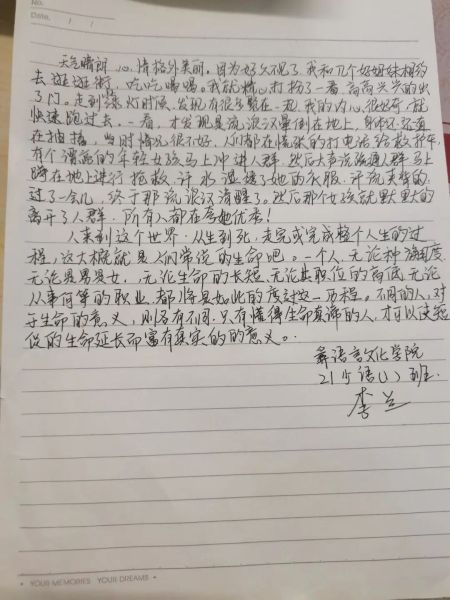 No.
Date. / /
天气晴朗，心情格外美丽。因为好久不见了，我和几个好姐妹相约
去逛逛街，吃吃喝喝。我就精心打扮了一番高高兴兴的出
了门。走到绿灯时候，发现有很多聚在一起，我的内心很好奇，就
快速跑过去。一看，才发现是流浪汉晕倒在地上，身体还直
在抽搐，当时情况很不好，人们都在慌张的打电话给救护车，
有个漂亮的年轻女孩马上冲进人群，然后大声说疏通人群马上
跪在地上进行抢救，汗水湿透了她的衣服，汗流夹背的，
过了一会儿，终于那流浪汉清醒了。然后那个女孩就默默的
离开了人群，所有人都在夸她优秀！
人来到这个世界，从生到死，走完或完成整个人生的过
程，这大概就是人们常说的生命吧。一个人，无论种
无论是男是女，无论生命的长短，无论其职位的高低，无论
从事何等的职业，都将是如此的度过这一历程。不同的人，对
于生命的意义，则各有不同，只有懂得生命真谛的人，才可以使短
促的生命延长而富有真实的的意义。
彝语言文化学院
21 语(1)班.
李兰
YOUR MEMORIES YOUR DREAMS